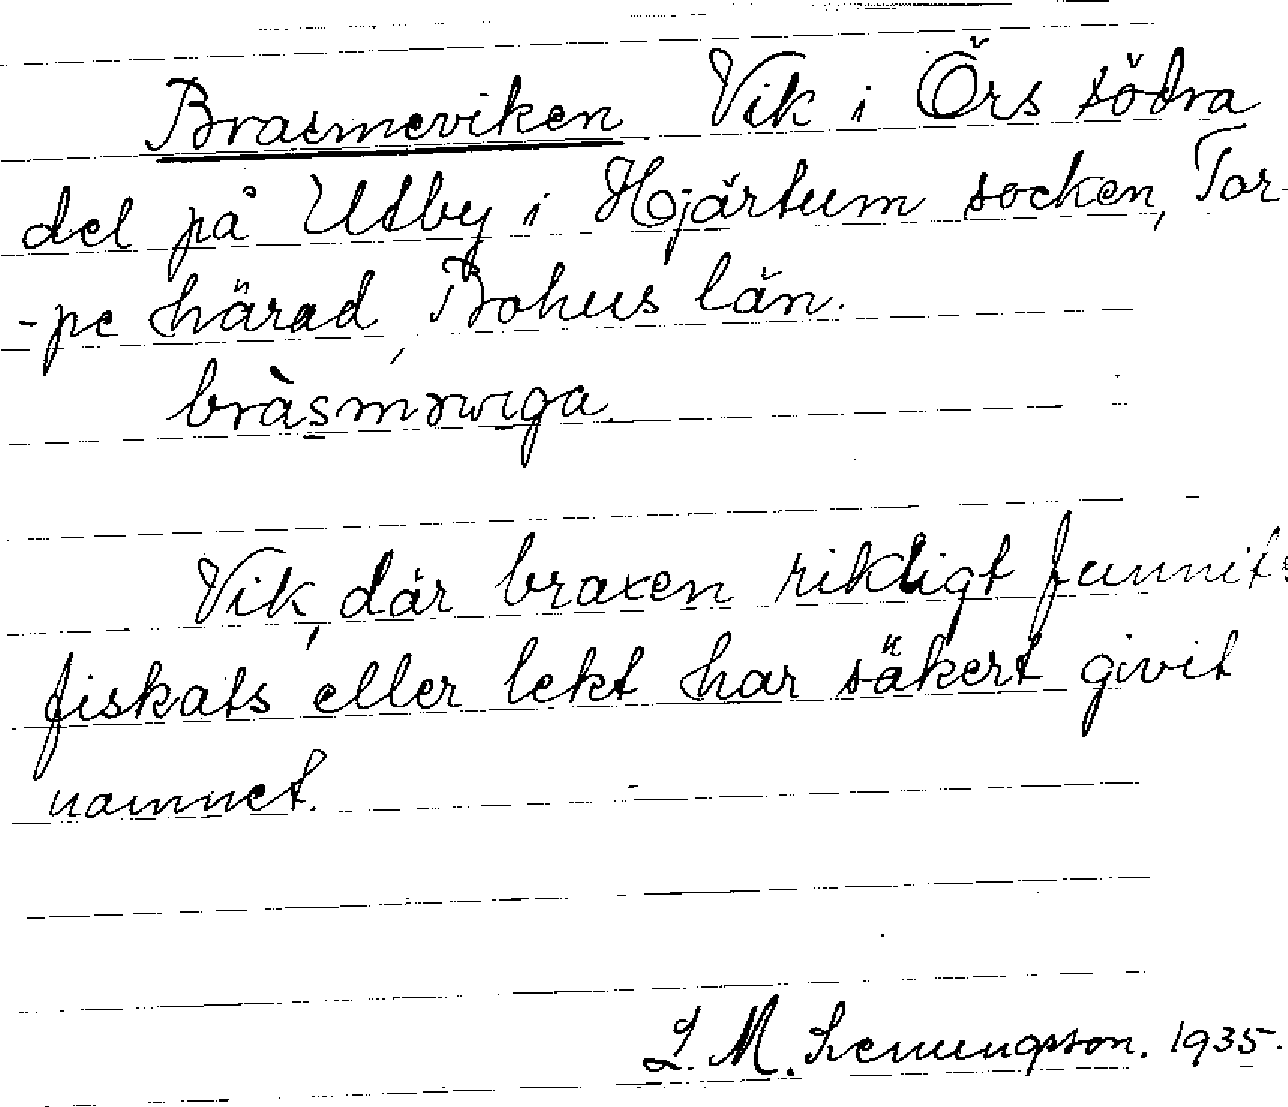 Brasmeviken Vik i Örs södra
del på Utby i Hjärtum socken, Tor-
-pe härad, Bohus län.
bràsmǝwıga
Vik, där braxen rikligt funnits
fiskats eller lekt har säkert givit
namnet.
L. M. 1935.